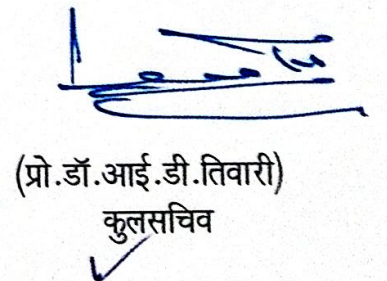 (प्रो.डॉ.आई.डी.तिवारी)
कुलसचिव